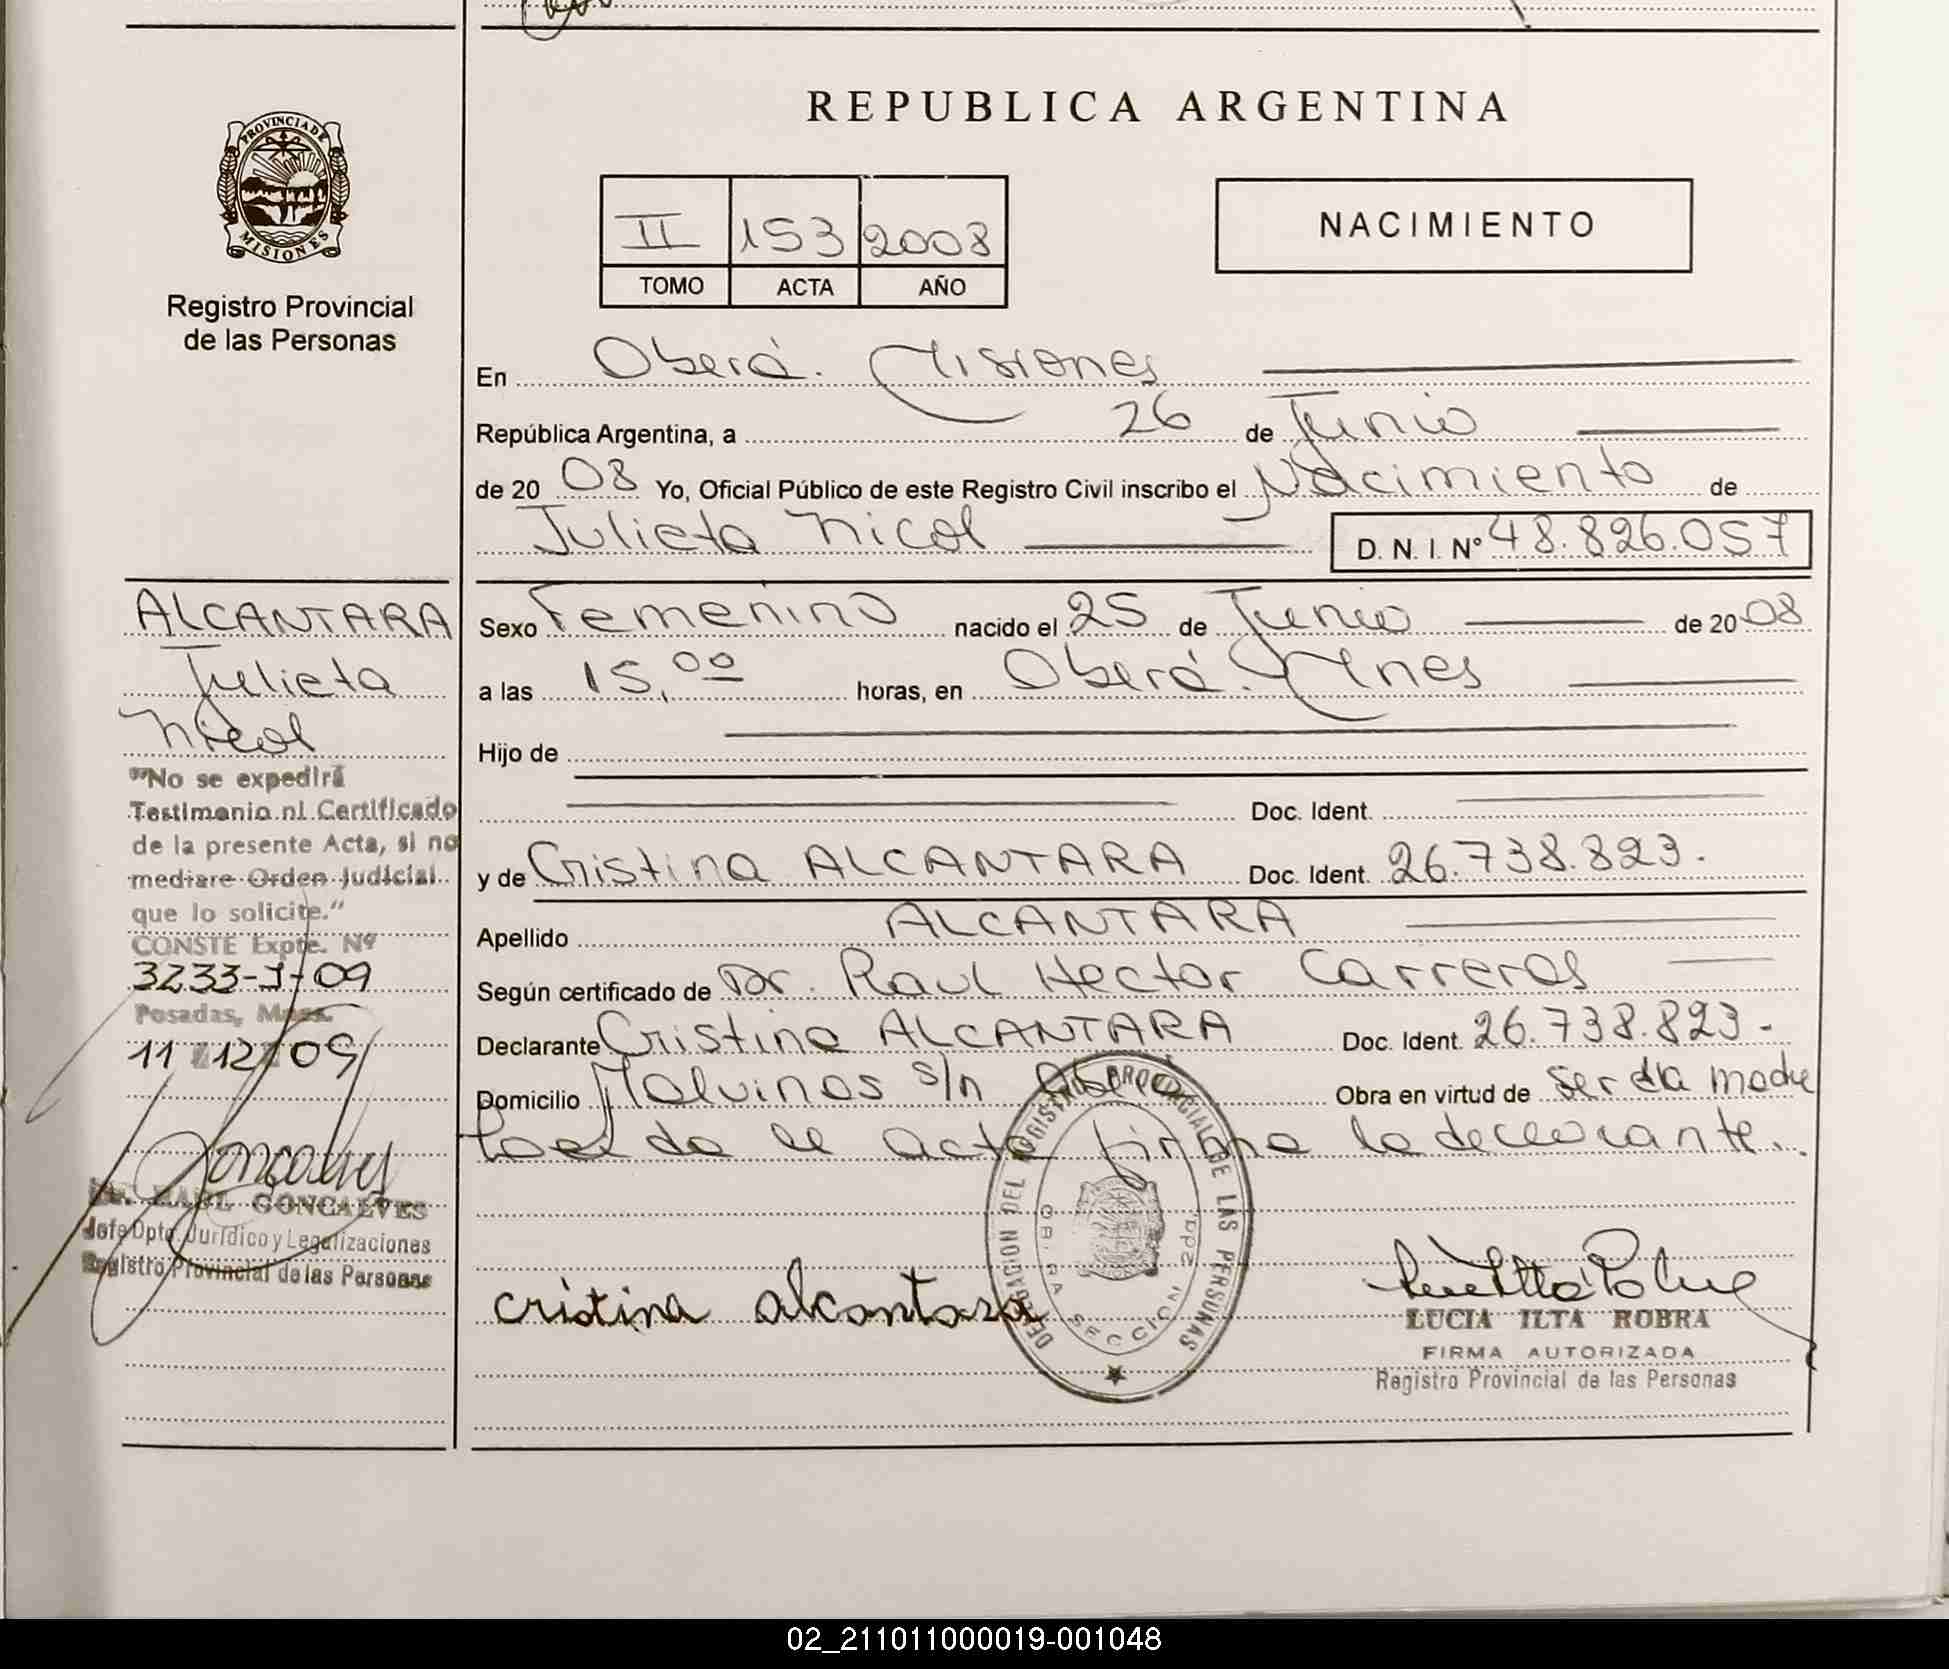 REPUBLICA ARGENTINA
PROVINCIA DE
MISIONES
Registro Provincial
de las Personas
II 153 2008
TOMO ACTA AÑO
NACIMIENTO
En Oberá. Misiones
República Argentina, a 26 de Junio
de 2008 Yo, Oficial Público de este Registro Civil inscribo el Nacimiento de
Julieta Nicol D. N. I. Nº 48.826.057
ALCANTARA
Julieta
Nicol
"No se expedirá
Testimonio ni Certificado
de la presente Acta, si no
mediare Orden Judicial
que lo solicite."
CONSTE Expte. Nº
3233-J-09
Posadas, Mnes.
11 12 09
GONCALVES
Jefe Dpto. Jurídico y Legalizaciones
Registro Provincial de las Personas
Sexo Femenino nacido el 25 de Junio de 2008
a las 15,00 horas, en Oberá. Mnes
Hijo de
Doc. Ident.
y de Cristina ALCANTARA Doc. Ident. 26.738.823.
Apellido ALCANTARA
Según certificado de Dr. Raul Hector Carreras
Declarante Cristina ALCANTARA Doc. Ident. 26.738.823-
Domicilio Malvinas s/n Oberá Obra en virtud de ser la madre
Leida el acta firma la declarante.
DELEGACION DEL REGISTRO PROVINCIAL DE LAS PERSONAS
SECCION
cristina alcantara
LUCIA ILTA ROBRA
FIRMA AUTORIZADA
Registro Provincial de las Personas
02_211011000019-001048